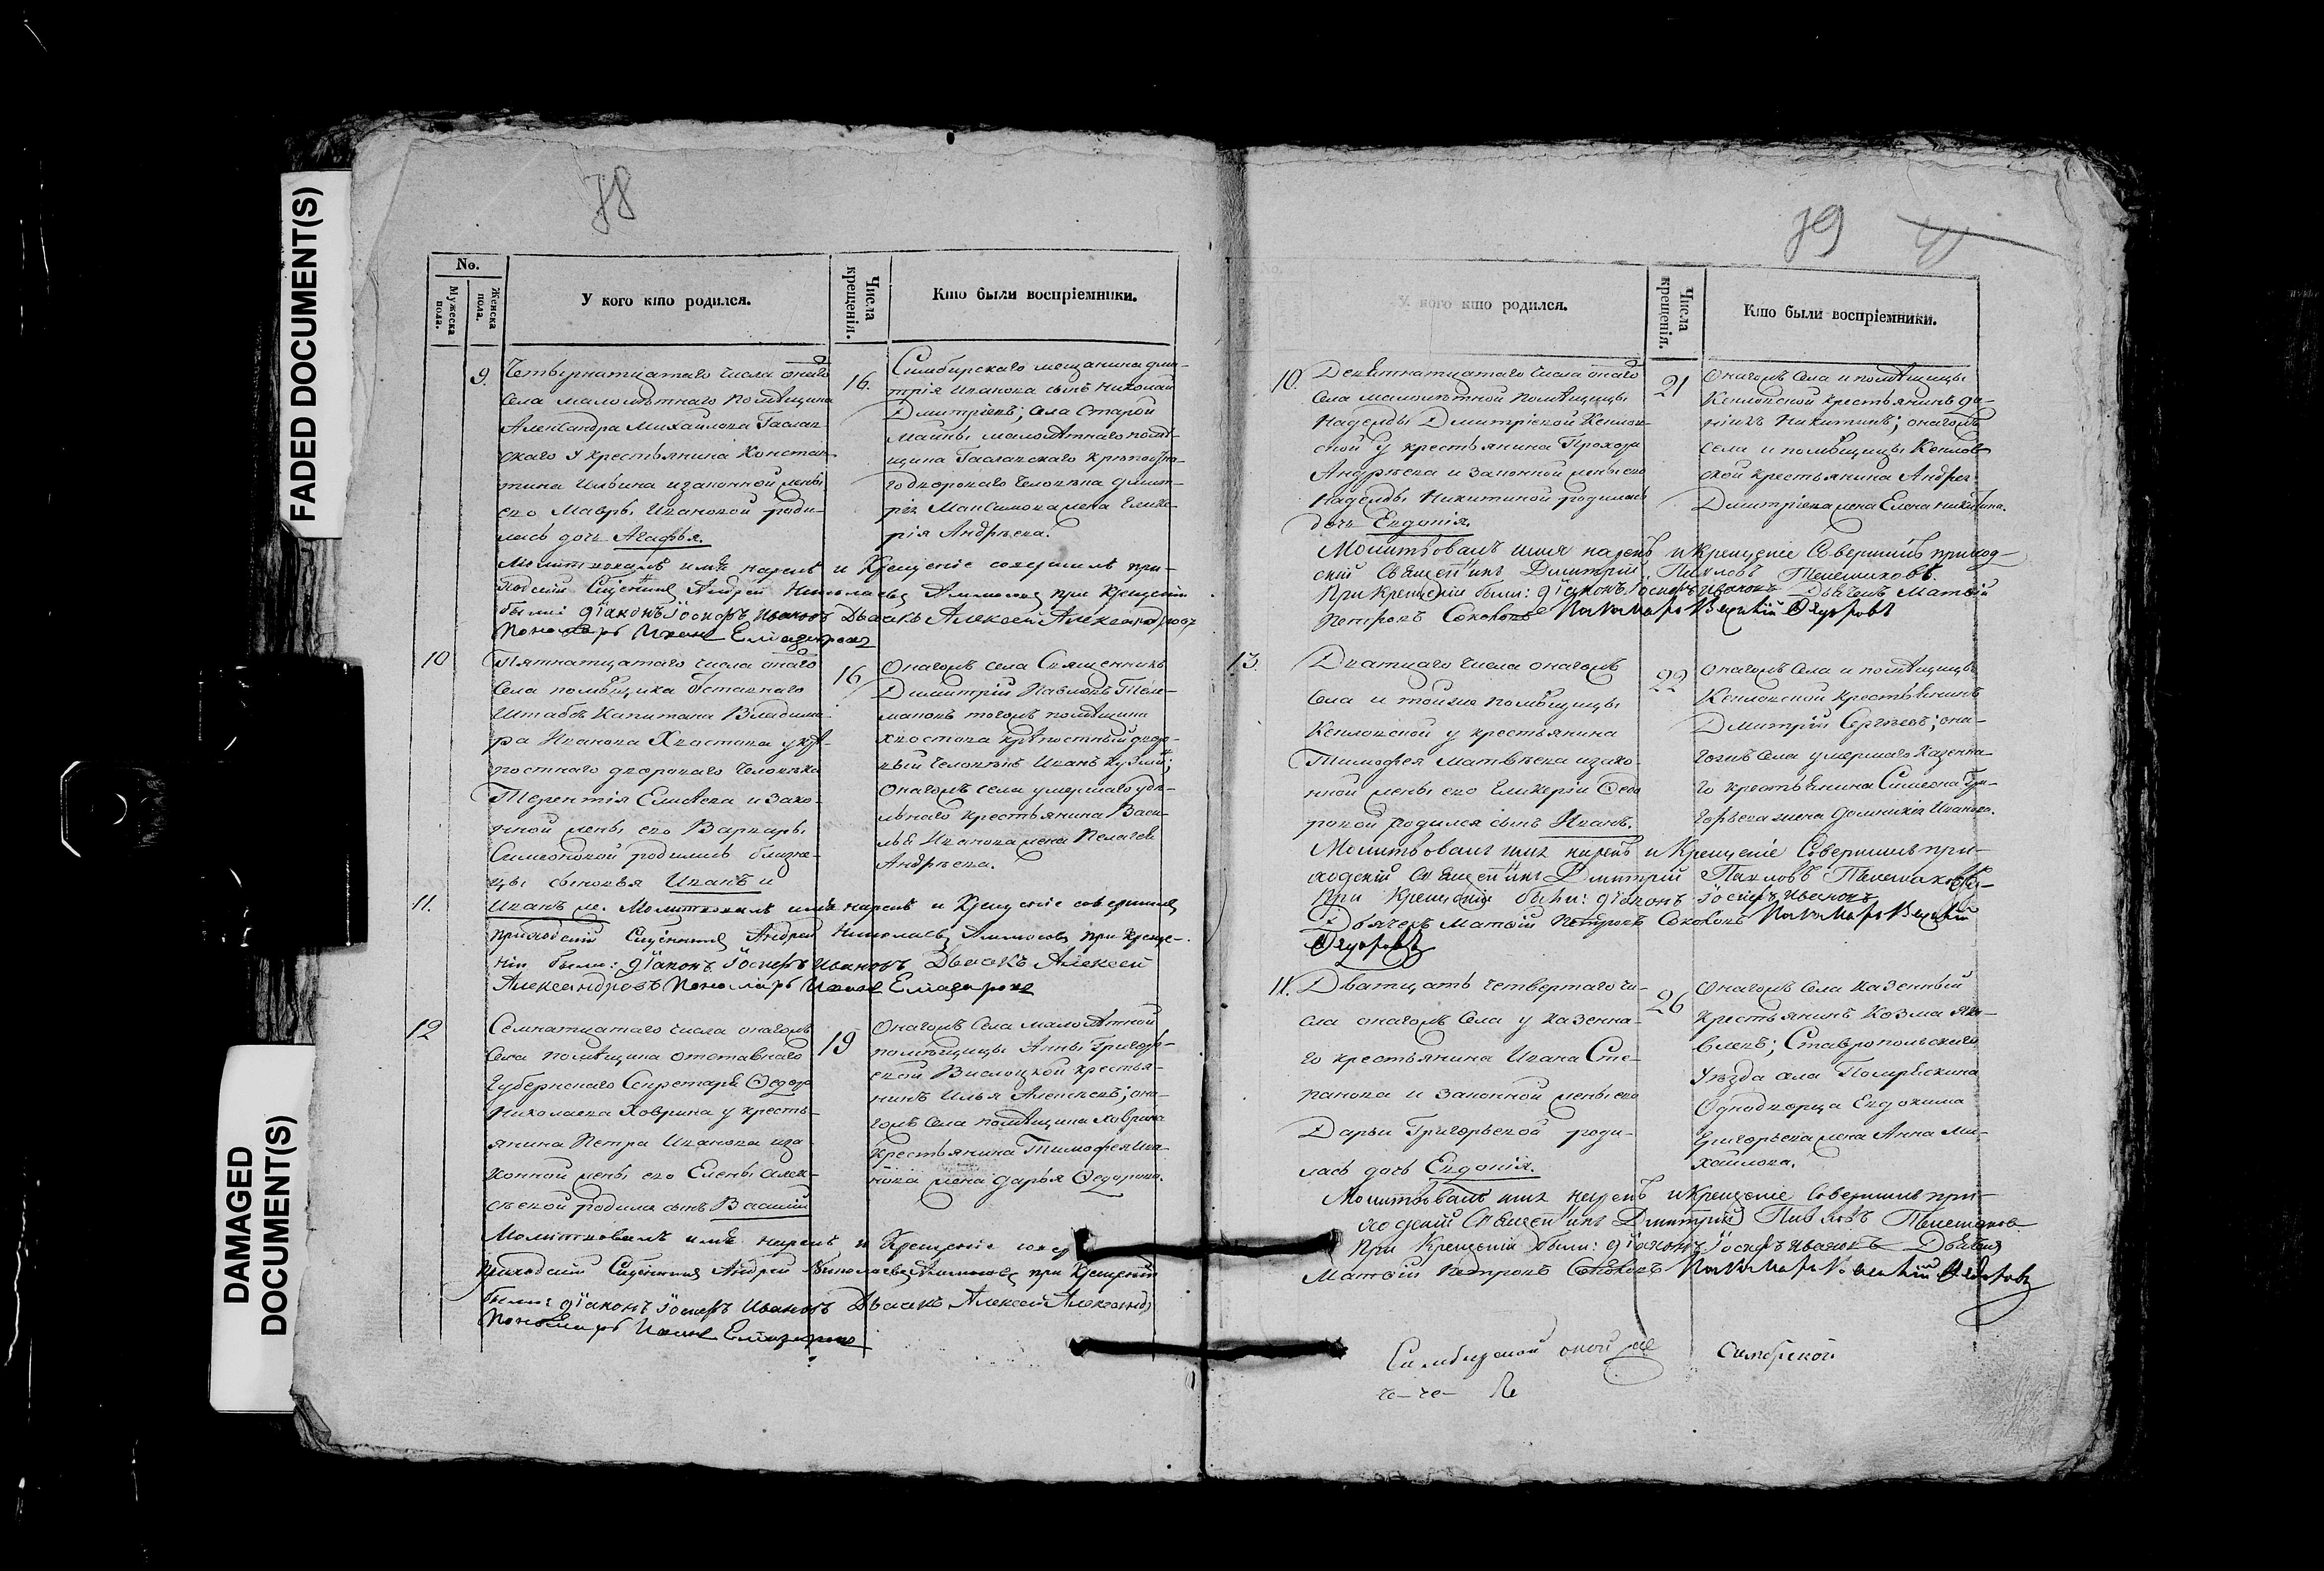 FADED DOCUMENT(S)
DAMAGED
DOCUMENT(S)
78
No.
Мужеска пола.
Женска пола.
У кого кто родился.
Числа крещенія.
Кто были воспріемники.
9.
Четвернатцатаго числа онаго
села малолѣтнаго помѣщика
Александра Михайлова
скаго у крестьянина Констан-
тина Ильина и законной жены
его Мавры Ивановой роди-
лась дочь Агафья.
16.
Симбирскаго мещанина Дми-
трія Иванова сынъ Николай
Дмитріевъ; села Старой
Майны малолѣтнаго помѣ-
щика крѣпостна-
го двороваго человѣка Дмит-
рія Максимова жена Глике-
рія Андрѣева.
Молитвовалъ имя нарекъ и Крещеніе совершилъ при-
ходскій Священникъ Андрей Николаевъ при Крещеніи
были: діаконъ Іосифъ Ивановъ Дьячекъ Алексей Александровъ
Пономарь Иванъ Елиазаровъ
10
Пятнатцатаго числа онаго
села помѣщика
Штабсъ Капитана Владими-
ра Иванова Хвостова у крѣ-
постнаго двороваго человѣка
Терентія Елисѣева и зако-
нной жены его Варвары
Симеоновой родились близне-
цы сыновья Иванъ и
16
Онагожъ села Священникъ
Димитрій Павловъ
тогожъ помѣщика
Хвостова крѣпостный дворо-
вый человѣкъ Иванъ
Онагожъ села умершаго удѣ-
льнаго крестьянина Васи-
лья Иванова жена Пелагея
Андрѣева.
11.
Иванъ же. Молитвовалъ имя нарекъ и Крещеніе совершилъ
приходскій Священникъ Андрей Николаевъ при Креще-
ніи были: діаконъ Іосифъ Ивановъ Дьячекъ Алексей
Александровъ Пономарь Иванъ Елиазаровъ
12
Семнатцатаго числа онагожъ
села помѣщика отставнаго
Губернскаго Секретаря Ѳедора
Николаева Ховрина у кресть-
янина Петра Иванова и за-
конной жены его Елены Алек-
сѣевой родился сынъ Василій
19
Онагожъ села малолѣтной
помѣщицы Анны Григорь-
евой Вислоцкой крестья-
нинъ Илья Алексѣевъ; она-
гожъ села помѣщика Ховрина
крестьянина Тимофея Ива-
нова жена Дарья Ѳедорова.
Молитвовалъ имя нарекъ и Крещеніе
приходскій Священникъ Андрей Николаевъ при Крещеніи
были: діаконъ Іосифъ Ивановъ Дьячекъ Алексей
Пономарь Иванъ Елиазаровъ
79
У кого кто родился.
Числа крещенія.
Кто были воспріемники.
10.
Девятнатцатаго числа онаго
села малолѣтной помѣщицы
Надежды Дмитріевой
ской у крестьянина Прохора
Андрѣева и законной жены его
Надежды Никитиной родилась
дочь Евдокія.
21
Онагожъ села и помѣщицы
крестьянинъ
Никитинъ; онагожъ
села и помѣщицы
ской крестьянина Андрея
Дмитріева жена Елена Никитина.
Молитвовалъ имя нарекъ и крещеніе Совершилъ приход-
скій Священникъ Димитрій Павловъ
При Крещеніи были: діаконъ Іосифъ Ивановъ Дьячекъ Матвій
Петровъ Соколовъ Пономарь Василій Ѳедоровъ
13.
Дватцаго числа онагожъ
села и тойже помѣщицы
у крестьянина
Тимофея Матвѣева и зако-
нной жены его Гликеріи Ѳедо
ровой родился сынъ Иванъ.
22
Онагожъ села и помѣщицы
крестьянинъ
Дмитрій Сергѣевъ; она-
гожъ села умершаго казенна-
го крестьянина Симеона Гри-
горьева жена Домникія Иванова.
Молитвовалъ имя нарекъ и Крещеніе Совершилъ при-
ходскій Священникъ Димитрій Павловъ
При Крещеніи были: діаконъ Іосифъ Ивановъ
Дьячекъ Матвій Петровъ Соколовъ Пономарь Василій
Ѳедоровъ
11.
Дватцать четвертаго чи-
сла онагожъ села у казенна-
го крестьянина Ивана Сте-
панова и законной жены его
Дарьи Григорьевой роди-
лась дочь Евдокія.
26
Онагожъ села казенный
крестьянинъ Козма Яко-
влевъ; Ставропольскаго
уѣзда села
Однодворца Евдокима
Григорьева жена Анна Ми-
хайлова.
Молитвовалъ имя нарекъ и Крещеніе Совершилъ при-
ходскій Священникъ Димитрій Павловъ
При Крещеніи были: діаконъ Іосифъ Ивановъ Дьячекъ
Матвій Петровъ Соколовъ Пономарь Василій Ѳедоровъ